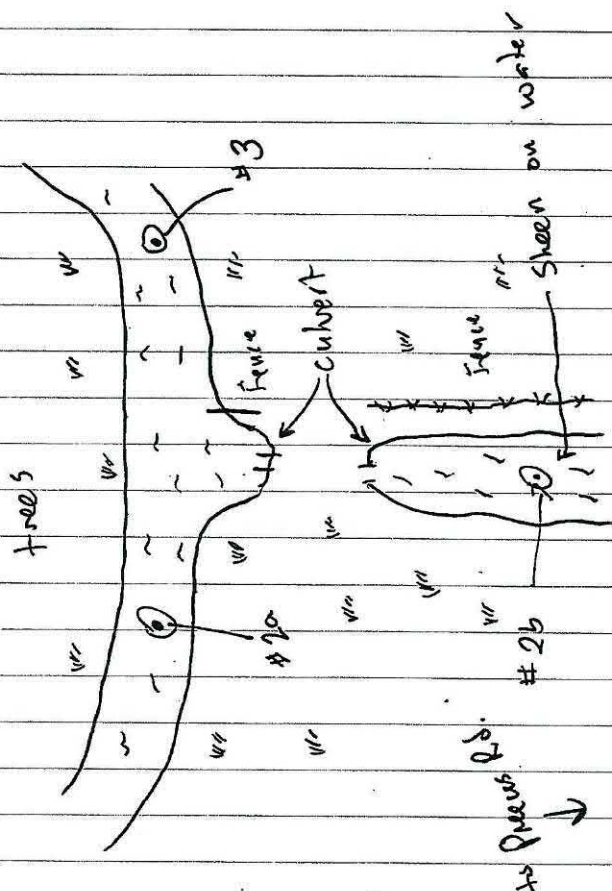 trees
#3
Fence
culvert
Fence
Sheen on water
#2a
#2b
to Preeus Rd.